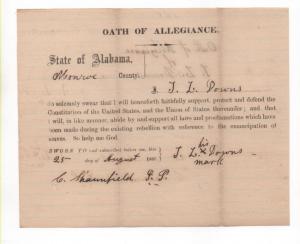 OATH OF ALLEGIANCE.
State of Alabama,
Monroe County.
I J. L. Downs
do solemnly swear that I will henceforth faithfully support, protect and defend the
Constitution of the United States, and the Union of States thereunder; and that
I will, in like manner, abide by and support all laws and proclamations which have
been made during the existing rebellion with reference to the emancipation of
slaves. So help me God.
SWORN TO and subscribed before me, this
25 day of August 186
J. L. his x mark Downs
C. P.